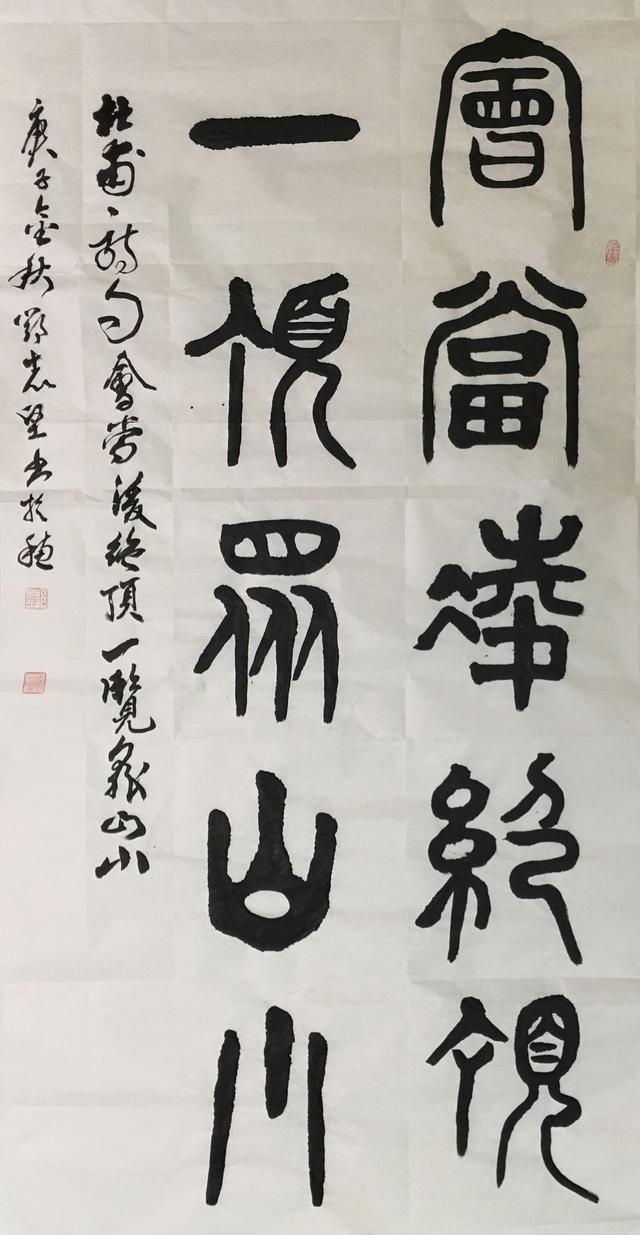 會當凌絕頂
一覽眾山小
杜甫詩句會當凌絕頂一覽眾山小
庚子金秋志堅書於穗